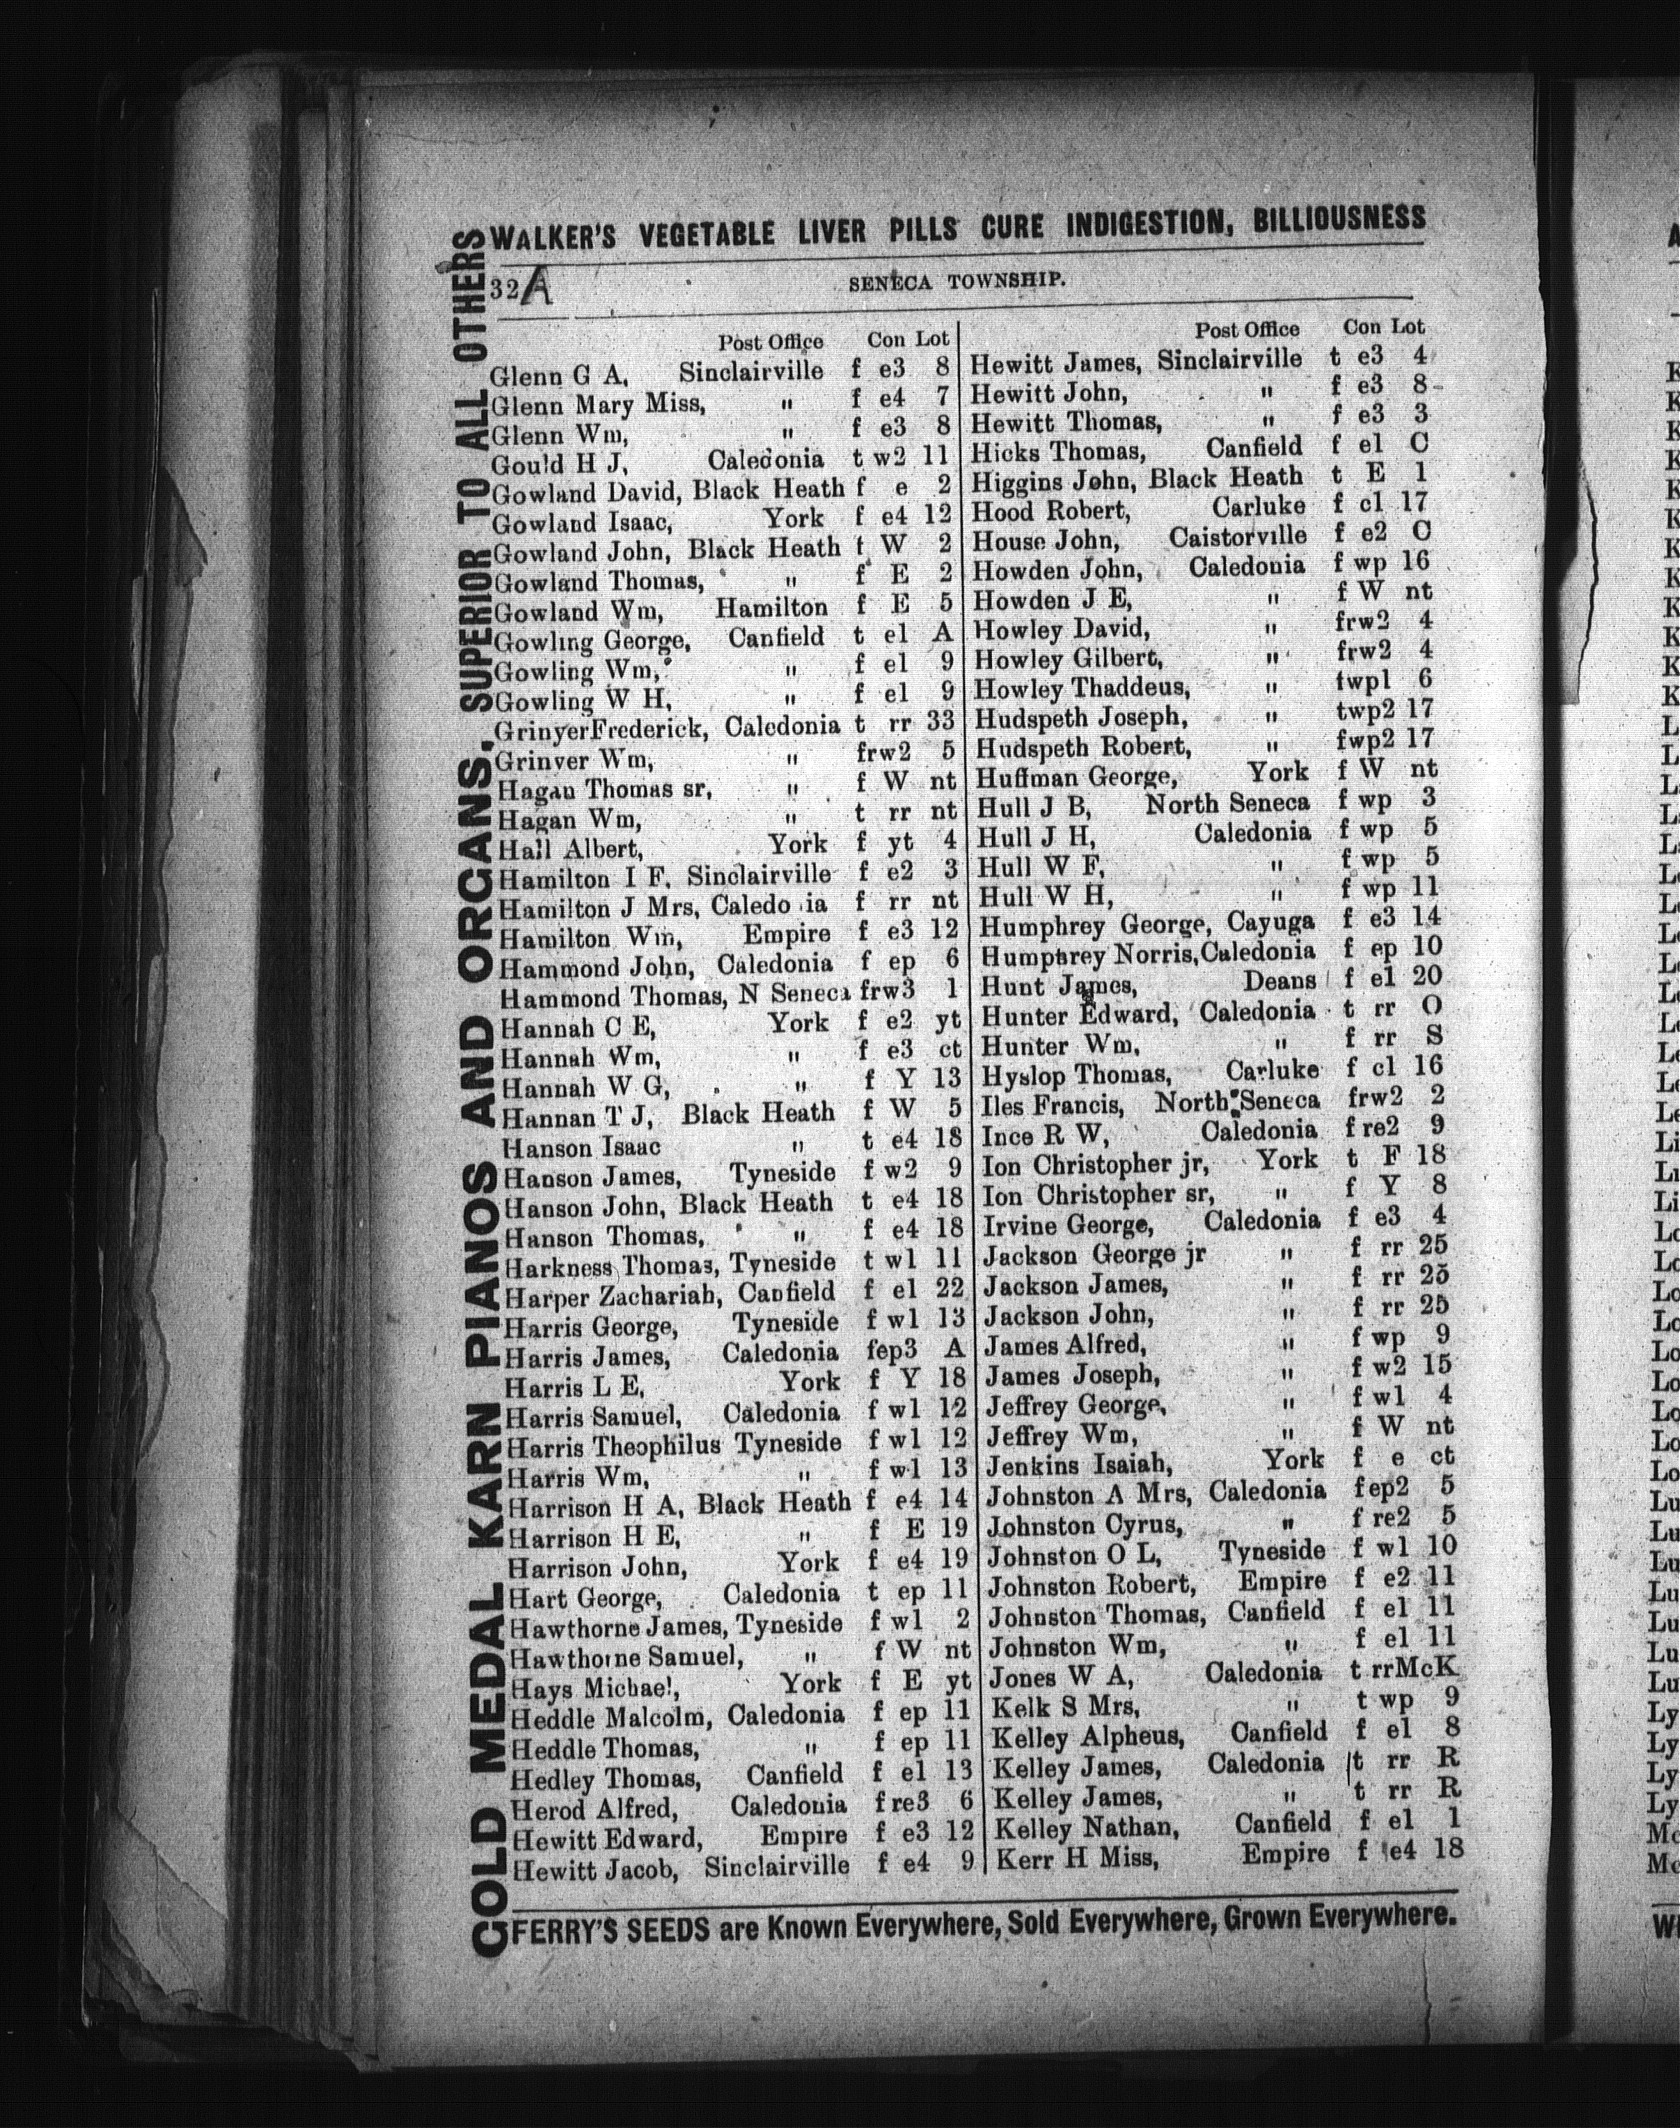 WALKER'S VEGETABLE LIVER PILLS CURE INDIGESTION, BILLIOUSNESS
32A SENECA TOWNSHIP.
GOLD MEDAL KARN PIANOS AND ORGANS. SUPERIOR TO ALL OTHERS
Post Office Con Lot
Glenn G A, Sinclairville f e3 8
Glenn Mary Miss, " f e4 7
Glenn Wm, " f e3 8
Gould H J, Caledonia t w2 11
Gowland David, Black Heath f e 2
Gowland Isaac, York f e4 12
Gowland John, Black Heath t W 2
Gowland Thomas, " f E 2
Gowland Wm, Hamilton f E 5
Gowling George, Canfield t e1 A
Gowling Wm, " f e1 9
Gowling W H, " f e1 9
Grinyer Frederick, Caledonia t rr 33
Grinyer Wm, " frw2 5
Hagan Thomas sr, " f W nt
Hagan Wm, " t rr nt
Hall Albert, York f yt 4
Hamilton I F, Sinclairville f e2 3
Hamilton J Mrs, Caledo ia f rr nt
Hamilton Wm, Empire f e3 12
Hammond John, Caledonia f ep 6
Hammond Thomas, N Seneca frw3 1
Hannah C E, York f e2 yt
Hannah Wm, " f e3 ct
Hannah W G, " f Y 13
Hannan T J, Black Heath f W 5
Hanson Isaac " t e4 18
Hanson James, Tyneside f w2 9
Hanson John, Black Heath t e4 18
Hanson Thomas, " f e4 18
Harkness Thomas, Tyneside t w1 11
Harper Zachariah, Canfield f e1 22
Harris George, Tyneside f w1 13
Harris James, Caledonia fep3 A
Harris L E, York f Y 18
Harris Samuel, Caledonia f w1 12
Harris Theophilus Tyneside f w1 12
Harris Wm, " f w1 13
Harrison H A, Black Heath f e4 14
Harrison H E, " f E 19
Harrison John, York f e4 19
Hart George, Caledonia t ep 11
Hawthorne James, Tyneside f w1 2
Hawthorne Samuel, " f W nt
Hays Michael, York f E yt
Heddle Malcolm, Caledonia f ep 11
Heddle Thomas, " f ep 11
Hedley Thomas, Canfield f e1 13
Herod Alfred, Caledonia f re3 6
Hewitt Edward, Empire f e3 12
Hewitt Jacob, Sinclairville f e4 9
Post Office Con Lot
Hewitt James, Sinclairville t e3 4
Hewitt John, " f e3 8
Hewitt Thomas, " f e3 3
Hicks Thomas, Canfield f e1 C
Higgins John, Black Heath t E 1
Hood Robert, Carluke f c1 17
House John, Caistorville f e2 C
Howden John, Caledonia f wp 16
Howden J E, " f W nt
Howley David, " frw2 4
Howley Gilbert, " frw2 4
Howley Thaddeus, " twp1 6
Hudspeth Joseph, " twp2 17
Hudspeth Robert, " fwp2 17
Huffman George, York f W nt
Hull J B, North Seneca f wp 3
Hull J H, Caledonia f wp 5
Hull W F, " f wp 5
Hull W H, " f wp 11
Humphrey George, Cayuga f e3 14
Humphrey Norris, Caledonia f ep 10
Hunt James, Deans f e1 20
Hunter Edward, Caledonia t rr O
Hunter Wm, " f rr S
Hyslop Thomas, Carluke f c1 16
Iles Francis, North Seneca frw2 2
Ince R W, Caledonia f re2 9
Ion Christopher jr, York t F 18
Ion Christopher sr, " f Y 8
Irvine George, Caledonia f e3 4
Jackson George jr " f rr 25
Jackson James, " f rr 25
Jackson John, " f rr 25
James Alfred, " f wp 9
James Joseph, " f w2 15
Jeffrey George, " f w1 4
Jeffrey Wm, " f W nt
Jenkins Isaiah, York f e ct
Johnston A Mrs, Caledonia f ep2 5
Johnston Cyrus, " f re2 5
Johnston O L, Tyneside f w1 10
Johnston Robert, Empire f e2 11
Johnston Thomas, Canfield f e1 11
Johnston Wm, " f e1 11
Jones W A, Caledonia t rr McK
Kelk S Mrs, " t wp 9
Kelley Alpheus, Canfield f e1 8
Kelley James, Caledonia t rr R
Kelley James, " t rr R
Kelley Nathan, Canfield f e1 1
Kerr H Miss, Empire f e4 18
FERRY'S SEEDS are Known Everywhere, Sold Everywhere, Grown Everywhere.